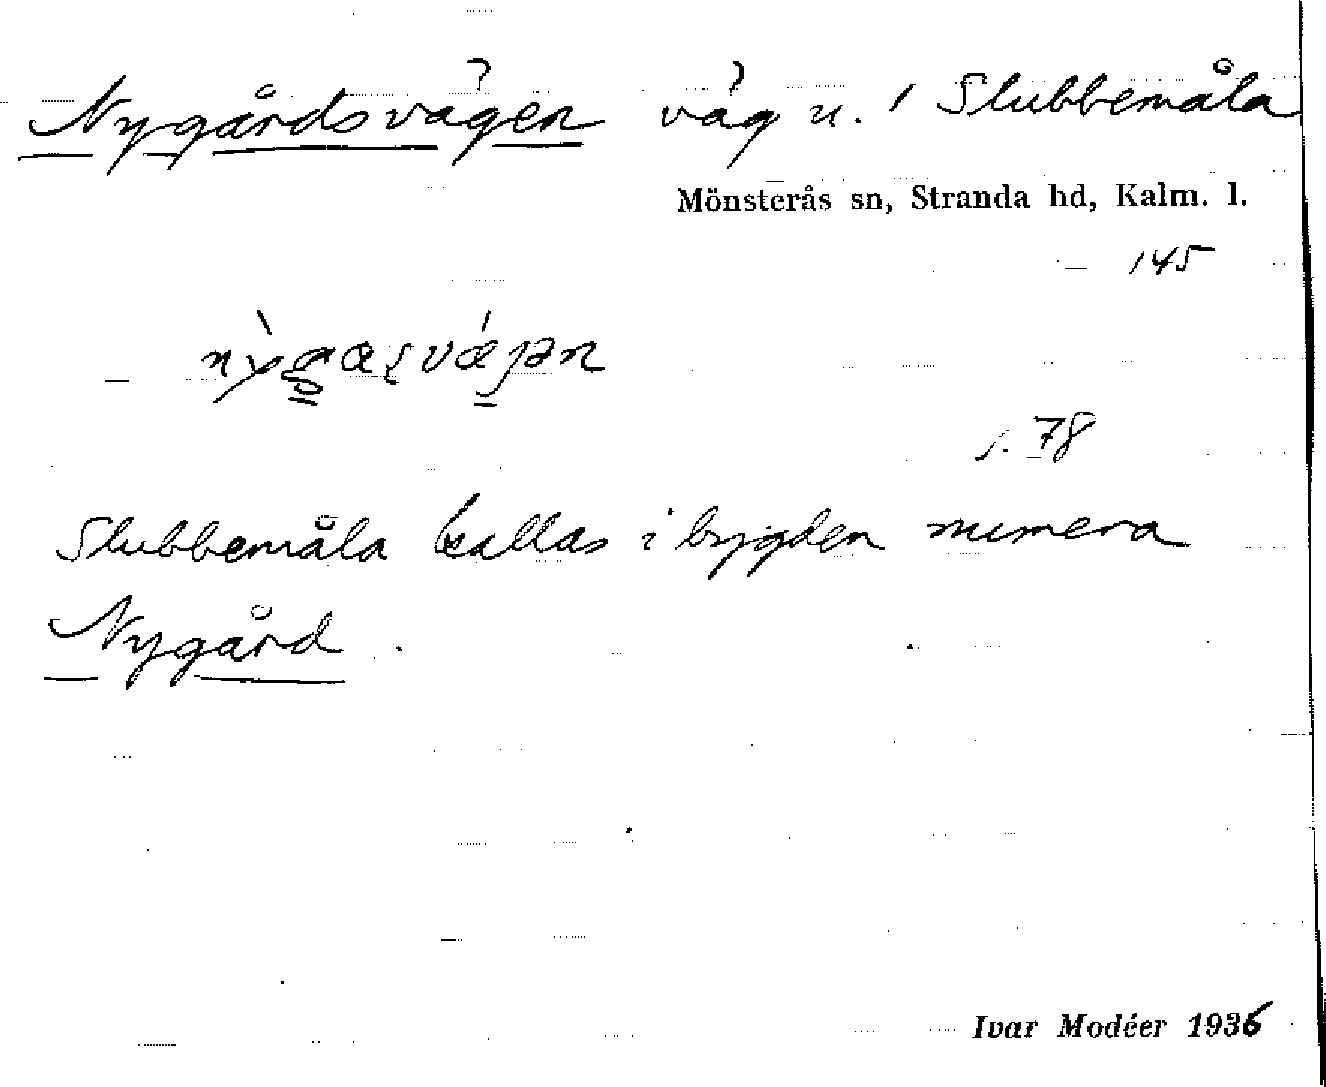 Nygårdsvägen väg u. 1 Slubbemåla
Mönsterås sn, Stranda hd, Kalm. l.
145
s. 78
Slubbemåla kallas i bygden numera
Nygård.
Ivar Modéer 1936